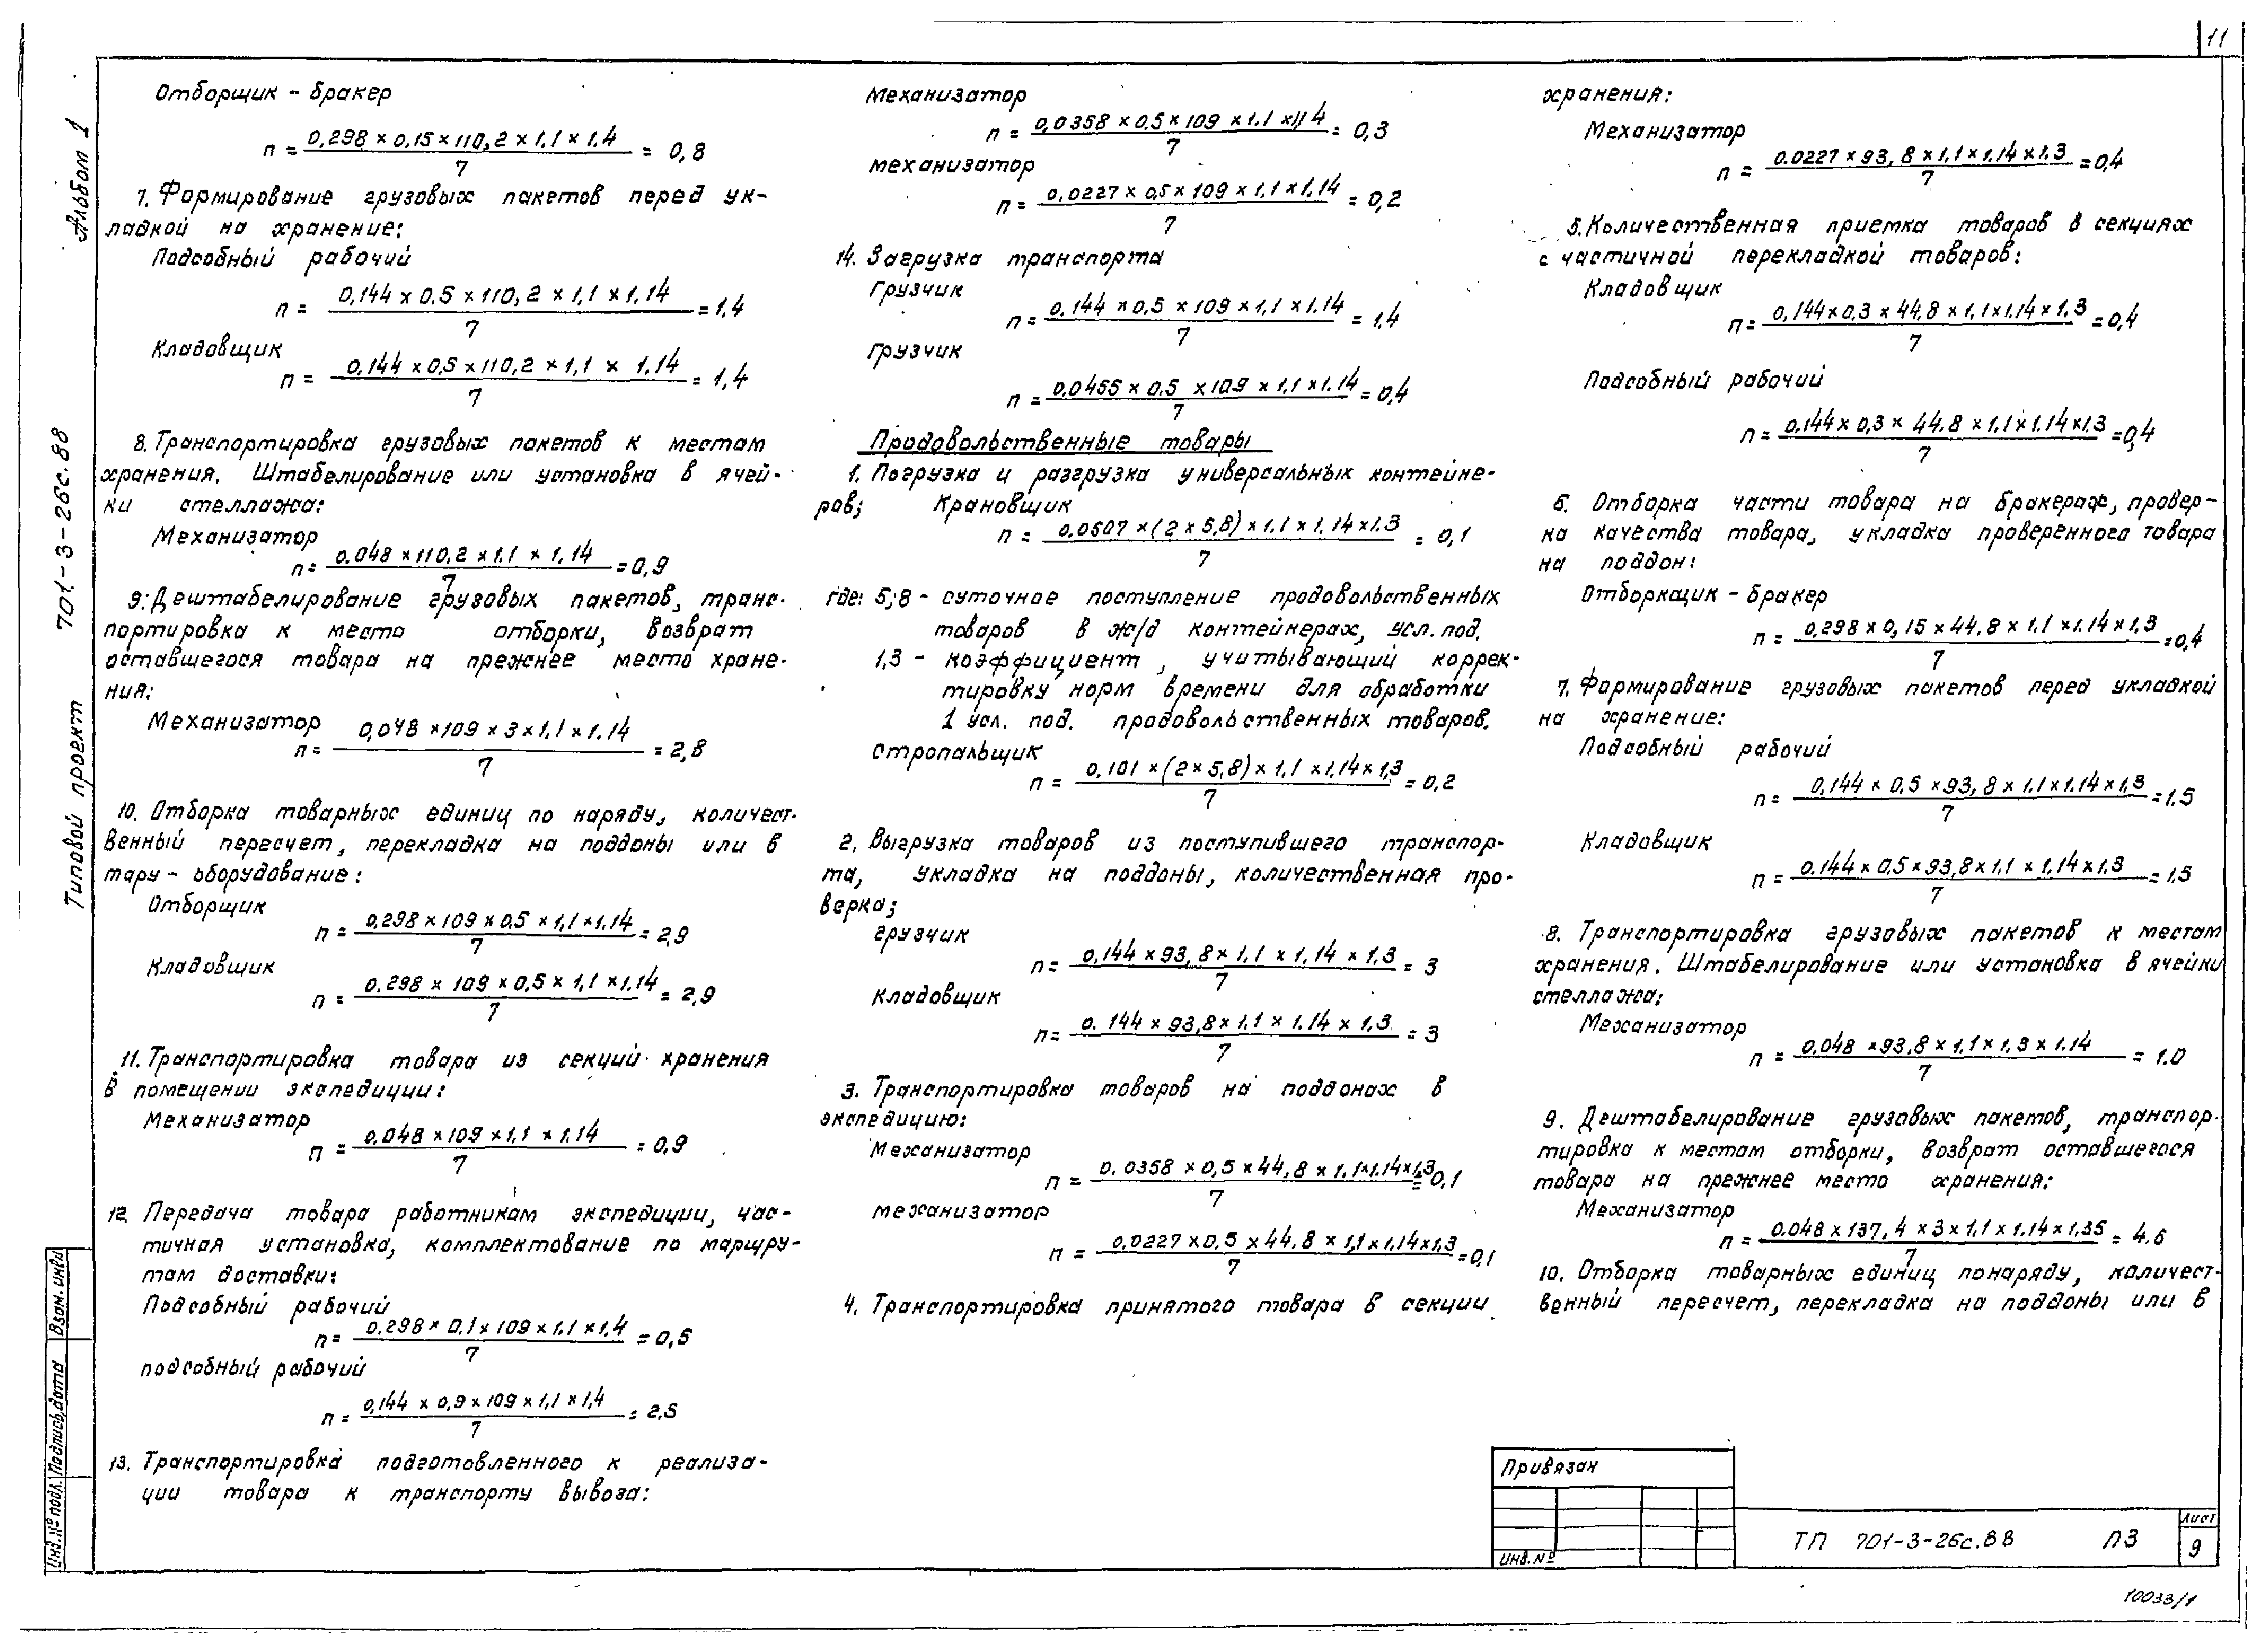 11
Альбом 1
Типовой проект 701-3-26с.88
Отборщик - бракер
п = 0,298 × 0,15 × 110,2 × 1,1 × 1.4 / 7 = 0,8
7. Формирование грузовых пакетов перед ук-
ладкой на хранение:
Подсобный рабочий
п = 0,144 × 0,5 × 110,2 × 1,1 × 1.14 / 7 = 1,4
Кладовщик
п = 0,144 × 0,5 × 110,2 × 1,1 × 1.14 / 7 = 1,4
8. Транспортировка грузовых пакетов к местам
хранения. Штабелирование или установка в ячей-
ки стеллажа:
Механизатор
п = 0.048 × 110,2 × 1.1 × 1.14 / 7 = 0,9
9. Дештабелирование грузовых пакетов, транс-
портировка к место отборки, возврат
оставшегося товара на прежнее место хране-
ния:
Механизатор
п = 0,048 × 109 × 3 × 1,1 × 1.14 / 7 = 2,8
10. Отборка товарных единиц по наряду, количест-
венный пересчет, перекладка на поддоны или в
тару - оборудование:
Отборщик
п = 0,298 × 109 × 0,5 × 1,1 × 1.14 / 7 = 2,9
Кладовщик
п = 0,298 × 109 × 0,5 × 1,1 × 1.14 / 7 = 2,9
11. Транспортировка товара из секций хранения
в помещении экспедиции:
Механизатор
п = 0,048 × 109 × 1,1 × 1.14 / 7 = 0,9
12. Передача товара работникам экспедиции, час-
тичная установка, комплектование по маршру-
там доставки:
Подсобный рабочий
п = 0.298 × 0,1 × 109 × 1,1 × 1,4 / 7 = 0,6
подсобный рабочий
п = 0,144 × 0,9 × 109 × 1,1 × 1,4 / 7 = 2,5
13. Транспортировка подготовленного к реализа-
ции товара к транспорту вывоза:
Механизатор
п = 0,0358 × 0.5 × 109 × 1.1 × 1,14 / 7 = 0,3
механизатор
п = 0,0227 × 0,5 × 109 × 1,1 × 1,14 / 7 = 0,2
14. Загрузка транспорта
Грузчик
п = 0,144 × 0,5 × 109 × 1,1 × 1.14 / 7 = 1,4
грузчик
п = 0.0455 × 0.5 × 109 × 1,1 × 1.14 / 7 = 0,4
Продовольственные товары
1. Погрузка и разгрузка универсальных контейне-
ров;
Крановщик
п = 0.0507 × (2 × 5,8) × 1.1 × 1.14 × 1.3 / 7 = 0,1
где: 5;8 - суточное поступление продовольственных
товаров в ж/д контейнерах, усл. под.
1,3 - коэффициент, учитывающий коррек-
тировку норм времени для обработки
1 усл. под. продовольственных товаров.
Стропальщик
п = 0,101 × (2 × 5,8) × 1,1 × 1.14 × 1,3 / 7 = 0,2
2. Выгрузка товаров из поступившего транспор-
та, укладка на поддоны, количественная про-
верка;
грузчик
п = 0,144 × 93,8 × 1,1 × 1,14 × 1,3 / 7 = 3
Кладовщик
п = 0.144 × 93,8 × 1,1 × 1.14 × 1,3 / 7 = 3
3. Транспортировка товаров на поддонах в
экспедицию:
Механизатор
п = 0,0358 × 0,5 × 44,8 × 1,1 × 1.14 × 1,3 / 7 = 0,1
механизатор
п = 0,0227 × 0,5 × 44,8 × 1,1 × 1,14 × 1,3 / 7 = 0,1
4. Транспортировка принятого товара в секции
хранения:
Механизатор
п = 0.0227 × 93,8 × 1,1 × 1.14 × 1.3 / 7 = 0,4
5. Количественная приемка товаров в секциях
с частичной перекладкой товаров:
Кладовщик
п = 0,144 × 0,3 × 44,8 × 1,1 × 1,14 × 1,3 / 7 = 0,4
Подсобный рабочий
п = 0,144 × 0,3 × 44.8 × 1,1 × 1.14 × 1,3 / 7 = 0,4
6. Отборка части товара на бракераж, провер-
ка качества товара, укладка проверенного товара
на поддон:
Отборкщик - бракер
п = 0,298 × 0,15 × 44.8 × 1,1 × 1.14 × 1,3 / 7 = 0,4
7. Формирование грузовых пакетов перед укладкой
на хранение:
Подсобный рабочий
п = 0,144 × 0,5 × 93,8 × 1,1 × 1.14 × 1,3 / 7 = 1.5
Кладовщик
п = 0.144 × 0.5 × 93,8 × 1,1 × 1,14 × 1,3 / 7 = 1.5
8. Транспортировка грузовых пакетов к местам
хранения. Штабелирование или установка в ячейки
стеллажа:
Механизатор
п = 0,048 × 93,8 × 1,1 × 1,3 × 1.14 / 7 = 1.0
9. Дештабелирование грузовых пакетов, транспор-
тировка к местам отборки, возврат оставшегося
товара на прежнее место хранения:
Механизатор
п = 0.048 × 137,4 × 3 × 1,1 × 1.14 × 1,35 / 7 = 4.6
10. Отборка товарных единиц понаряду, количест-
венный пересчет, перекладка на поддоны или в
Взам. инв.
Подпись, дата
Инв. № подл.
Привязан
Инв. №
ТП 701-3-26с.88 ПЗ
Лист
9
10033/1